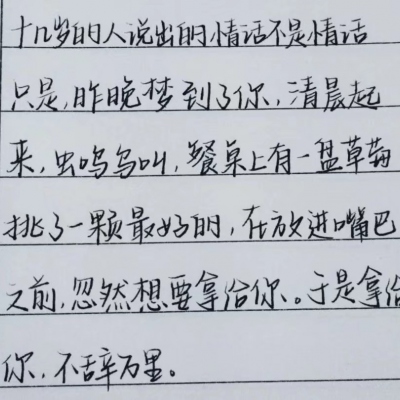 十几岁的人说出的情话不是情话
只是,昨晚梦到了你,清晨起
来,虫鸣鸟叫,餐桌上有一盆草莓
挑了一颗最好的,在放进嘴巴
之前,忽然想要拿给你。于是拿给
你,不辞万里。